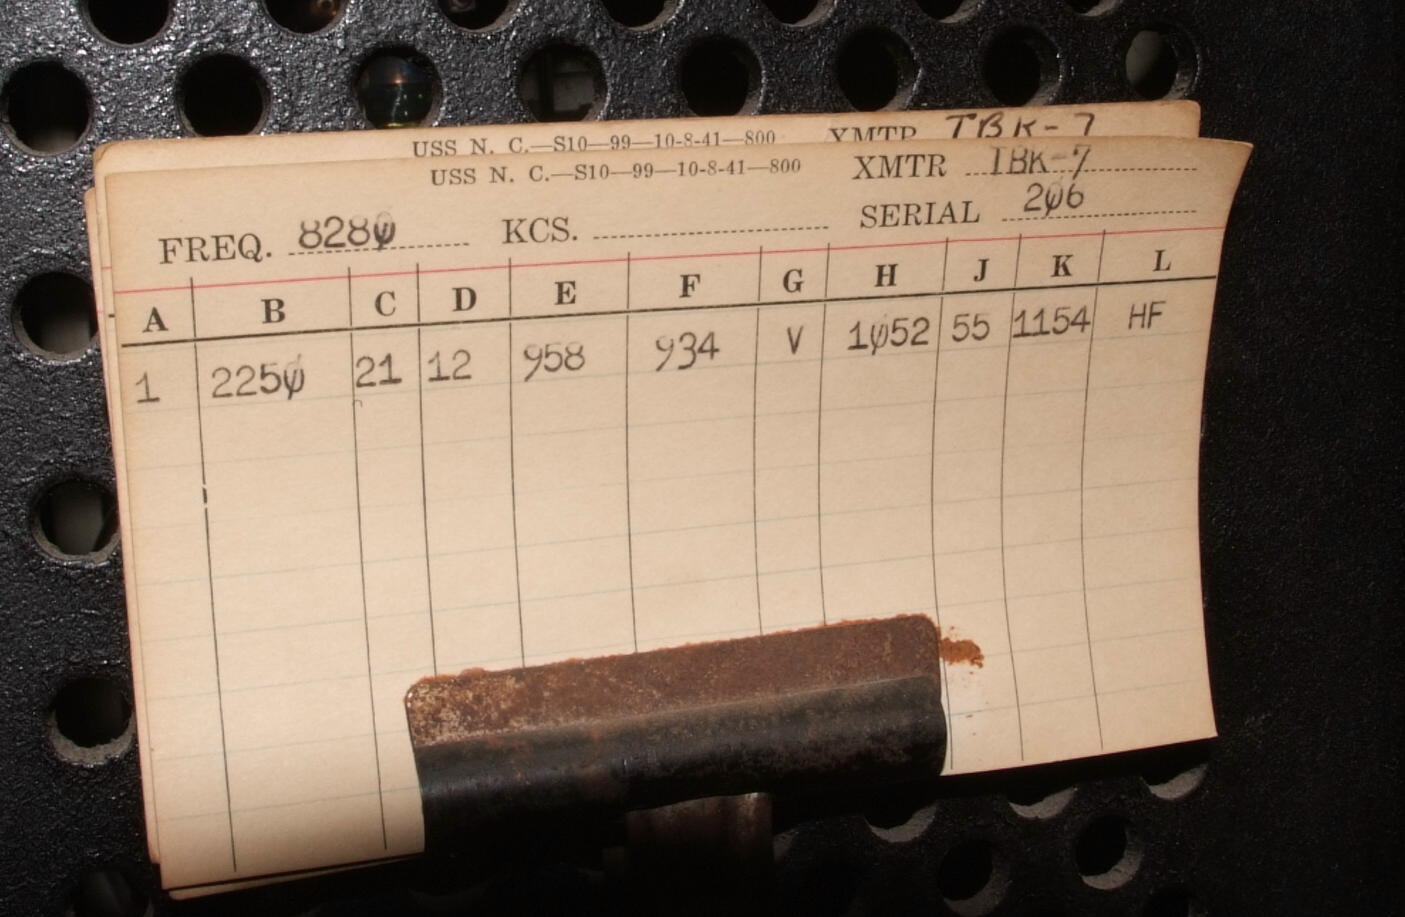 USS N. C.—S10—99—10-8-41—800 XMTR TBK-7
USS N. C.—S10—99—10-8-41—800 XMTR TBK-7
FREQ. 8280 KCS. SERIAL 206
A B C D E F G H J K L
1 2250 21 12 958 934 V 1052 55 1154 HF